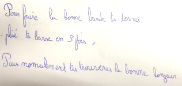 Pour faire la bonne boule te laisser
plié ta laisse en 3 fois,
Puis normalement tu trouveras la bonne longueur